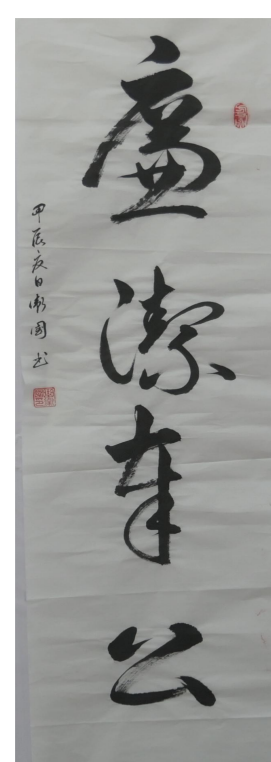 廉潔奉公
甲辰夏日衛國书